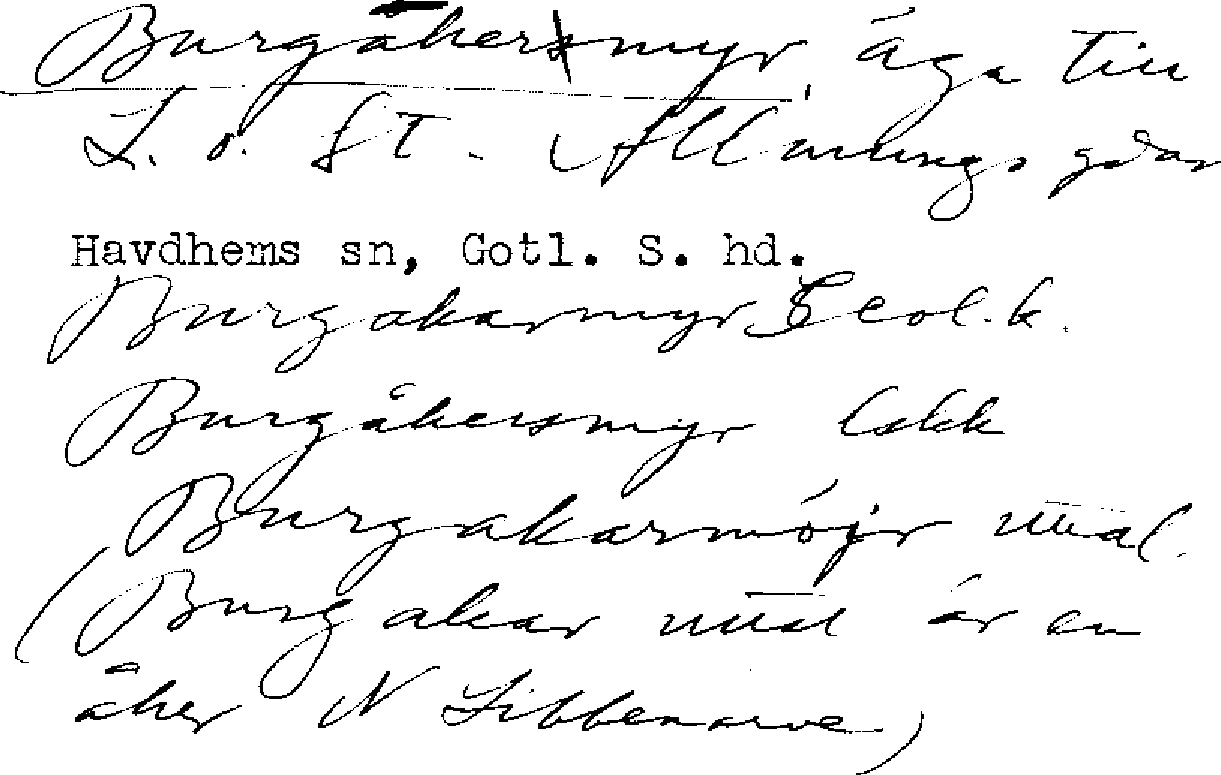 Burgåkersmyr, äga till
L. o. St. Allmungs gdar
Havdhems sn, Gotl. S. hd.
Burgakarmyr Geol.k.
Burgåkersmyr Eskk
Burgakarmöjr uttal.
(Burgakar uttal är en
åker N Libbenarve)